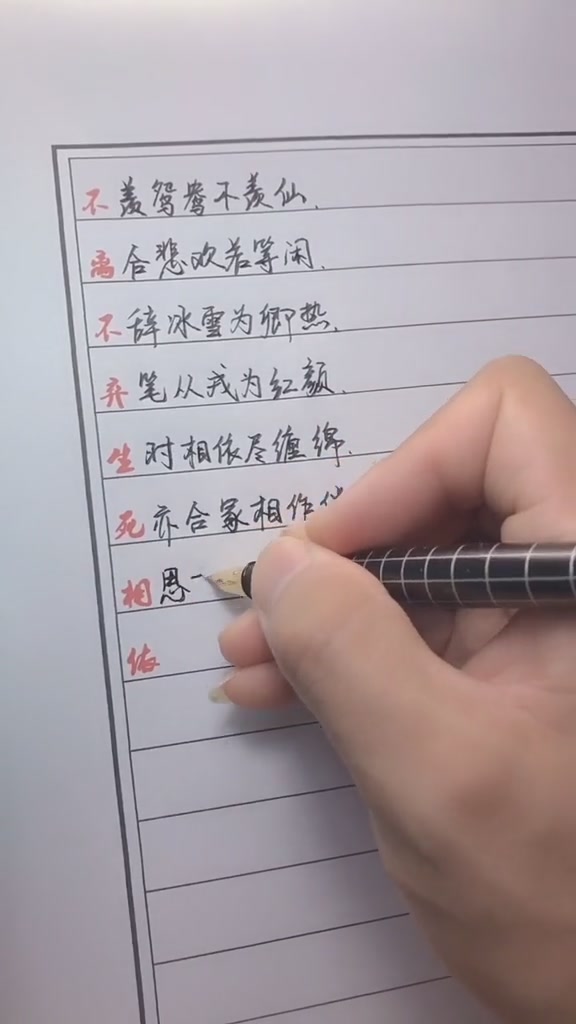 不羡鸳鸯不羡仙.
离合悲欢若等闲.
不辞冰雪为卿热.
弃笔从戎为红颜.
生时相依尽缠绵.
死亦合冢相作伴
相恩一
依